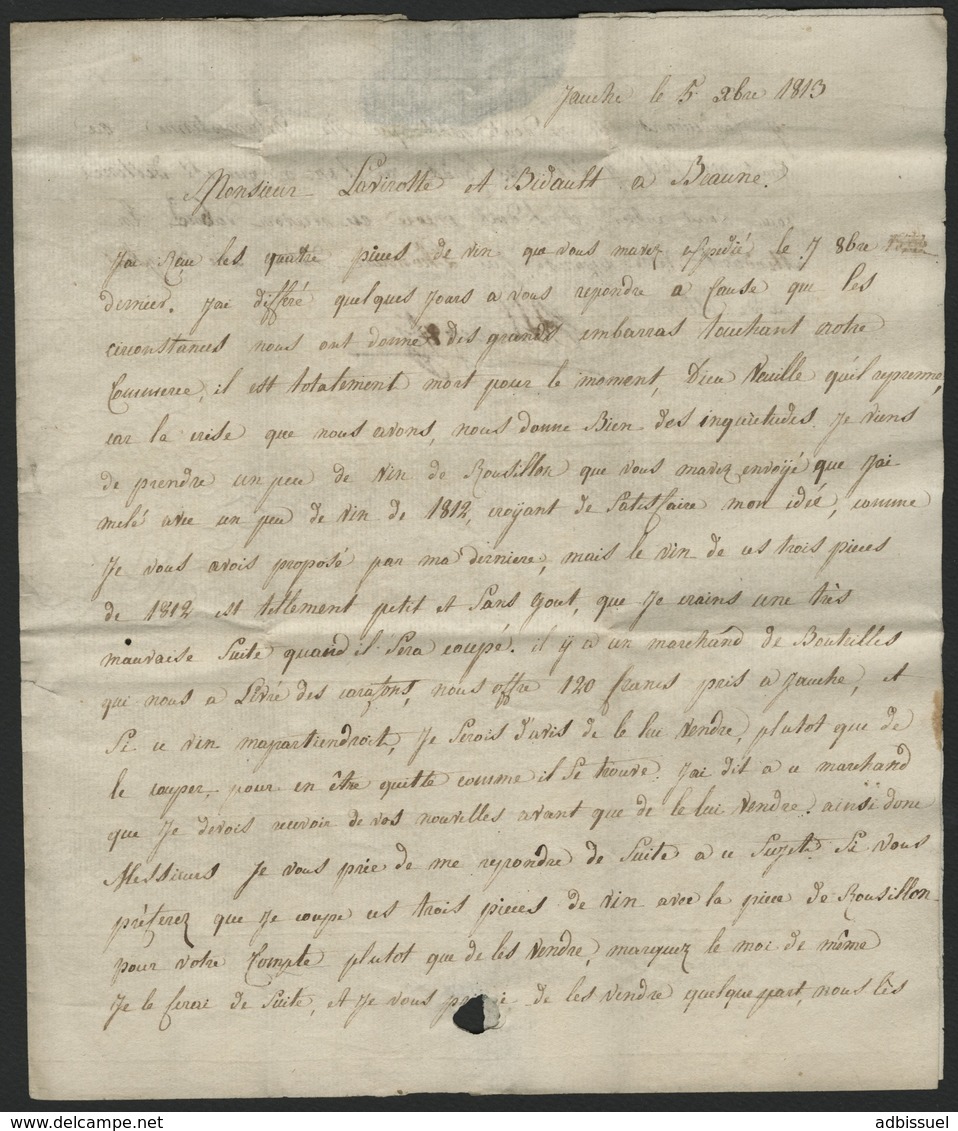 Jauche le 5 xbre 1813
Monsieur Lavirotte et Bidault a Beaune.
J'ai Reçu les quatre pieces de vin que vous mavez expedié le 7 8bre
dernier. J'ai differé quelques Jours a vous repondre a Cause que les
circonstances nous ont donné des grands embarras touchant notre
Commerce, il est totalement mort pour le moment, Dieu Veuille qu'il reprenne,
car la crise que nous avons, nous donne Bien des inquietudes. Je viens
de prendre un peu de vin de Rousillon que vous mavez envoÿé que J'ai
melé avec un peu de vin de 1812, croÿant de Satisfaire mon idée, comme
Je vous avois proposé par ma derniere, mais le vin de ces trois pieces
de 1812 est tellement petit et Sans gout, que Je crains une très
mauvaise Suite quand il Sera coupé. il ÿ a un marchand de Bouteilles
qui nous a Livré des nous offre 120 francs pris a Jauche, et
Si ce vin mapartiendroit, Je Serois d'avis de le lui Vendre, plutot que de
le couper, pour en être quitte comme il Se trouve. J'ai dit a ce marchand
que Je devois recevoir de vos nouvelles avant que de le lui Vendre. ainsi donc
Messieurs Je vous prie de me repondre de Suite a ce Sujet. Si vous
préferez que Je coupe ces trois pieces de vin avec la piece de Rousillon
pour votre Compte plutot que de les Vendre, marquez le moi de même
Je le ferai de Suite, et Je vous de les vendre quelque part, nous lès
adbissuel